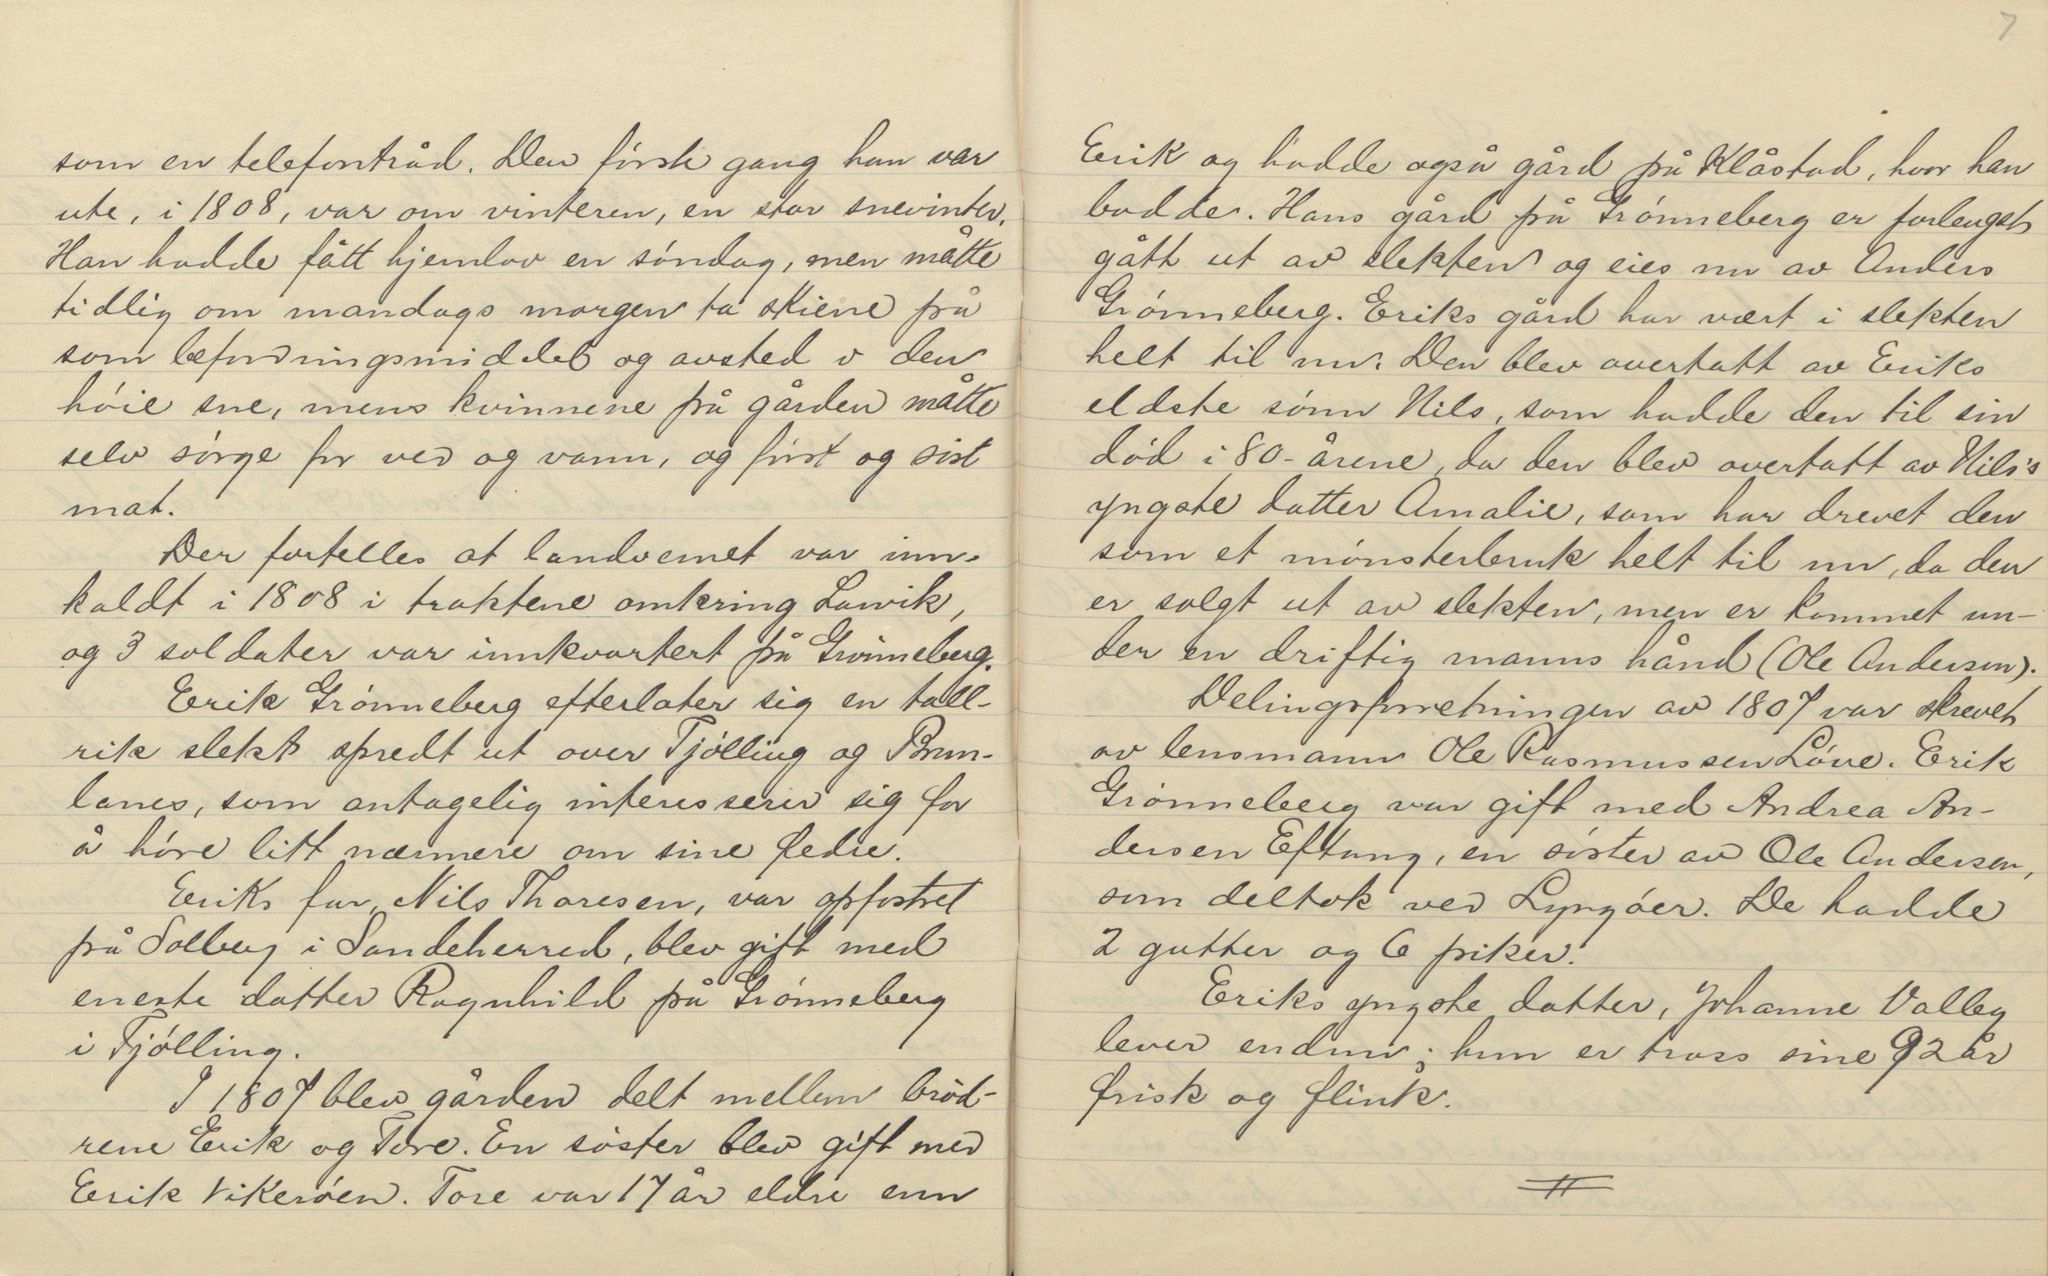 som en telefontråd. Den første gang han var
ute, i 1808, var om vinteren, en stor snevinter.
Han hadde fått hjemlov en søndag, men måtte
tidlig om mandags morgen ta skiene på
som befordringsmiddel og avsted i den
høie sne, mens kvinnene på gården måtte
selv sørge for ved og vann, og først og sist
mat.
Der fortelles at landvernet var inn-
kaldt i 1808 i traktene omkring Larvik,
og 3 soldater var innkvartert på Grønneberg.
Erik Grønneberg efterlater sig en tall-
rik slekt spredt ut over Tjølling og Brun-
lanes, som antagelig interesserer sig for
å høre litt nærmere om sine fedre.
Eriks far, Nils Thoresen, var opfostret
på Solberg i Sandeherred, blev gift med
eneste datter Ragnhild på Grønneberg
i Tjølling.
I 1807 blev gården delt mellem brød-
rene Erik og Tore. En søster blev gift med
Erik Vikerøen. Tore var 17 år eldre enn
7
Erik og hadde også gård på Klåstad, hvor han
bodde. Hans gård på Grønneberg er forlengst
gått ut av slekten og eies nu av Anders
Grønneberg. Eriks gård har vært i slekten
helt til nu. Den blev overtatt av Eriks
eldste sønn Nils, som hadde den til sin
død i 80-årene, da den blev overtatt av Nils's
yngste datter Amalie, som har drevet den
som et mønsterbruk helt til nu, da den
er solgt ut av slekten, men er kommet un-
der en driftig manns hånd (Ole Andersen).
Delingsforretningen av 1807 var skrevet
av lensmann Ole Rasmussen Løve. Erik
Grønneberg var gift med Andrea An-
dersen Eftang, en søster av Ole Andersen,
som deltok ved Lyngøer. De hadde
2 gutter og 6 piker.
Eriks yngste datter, Johanne Valley
lever endnu; hun er tross sine 92 år
frisk og flink.